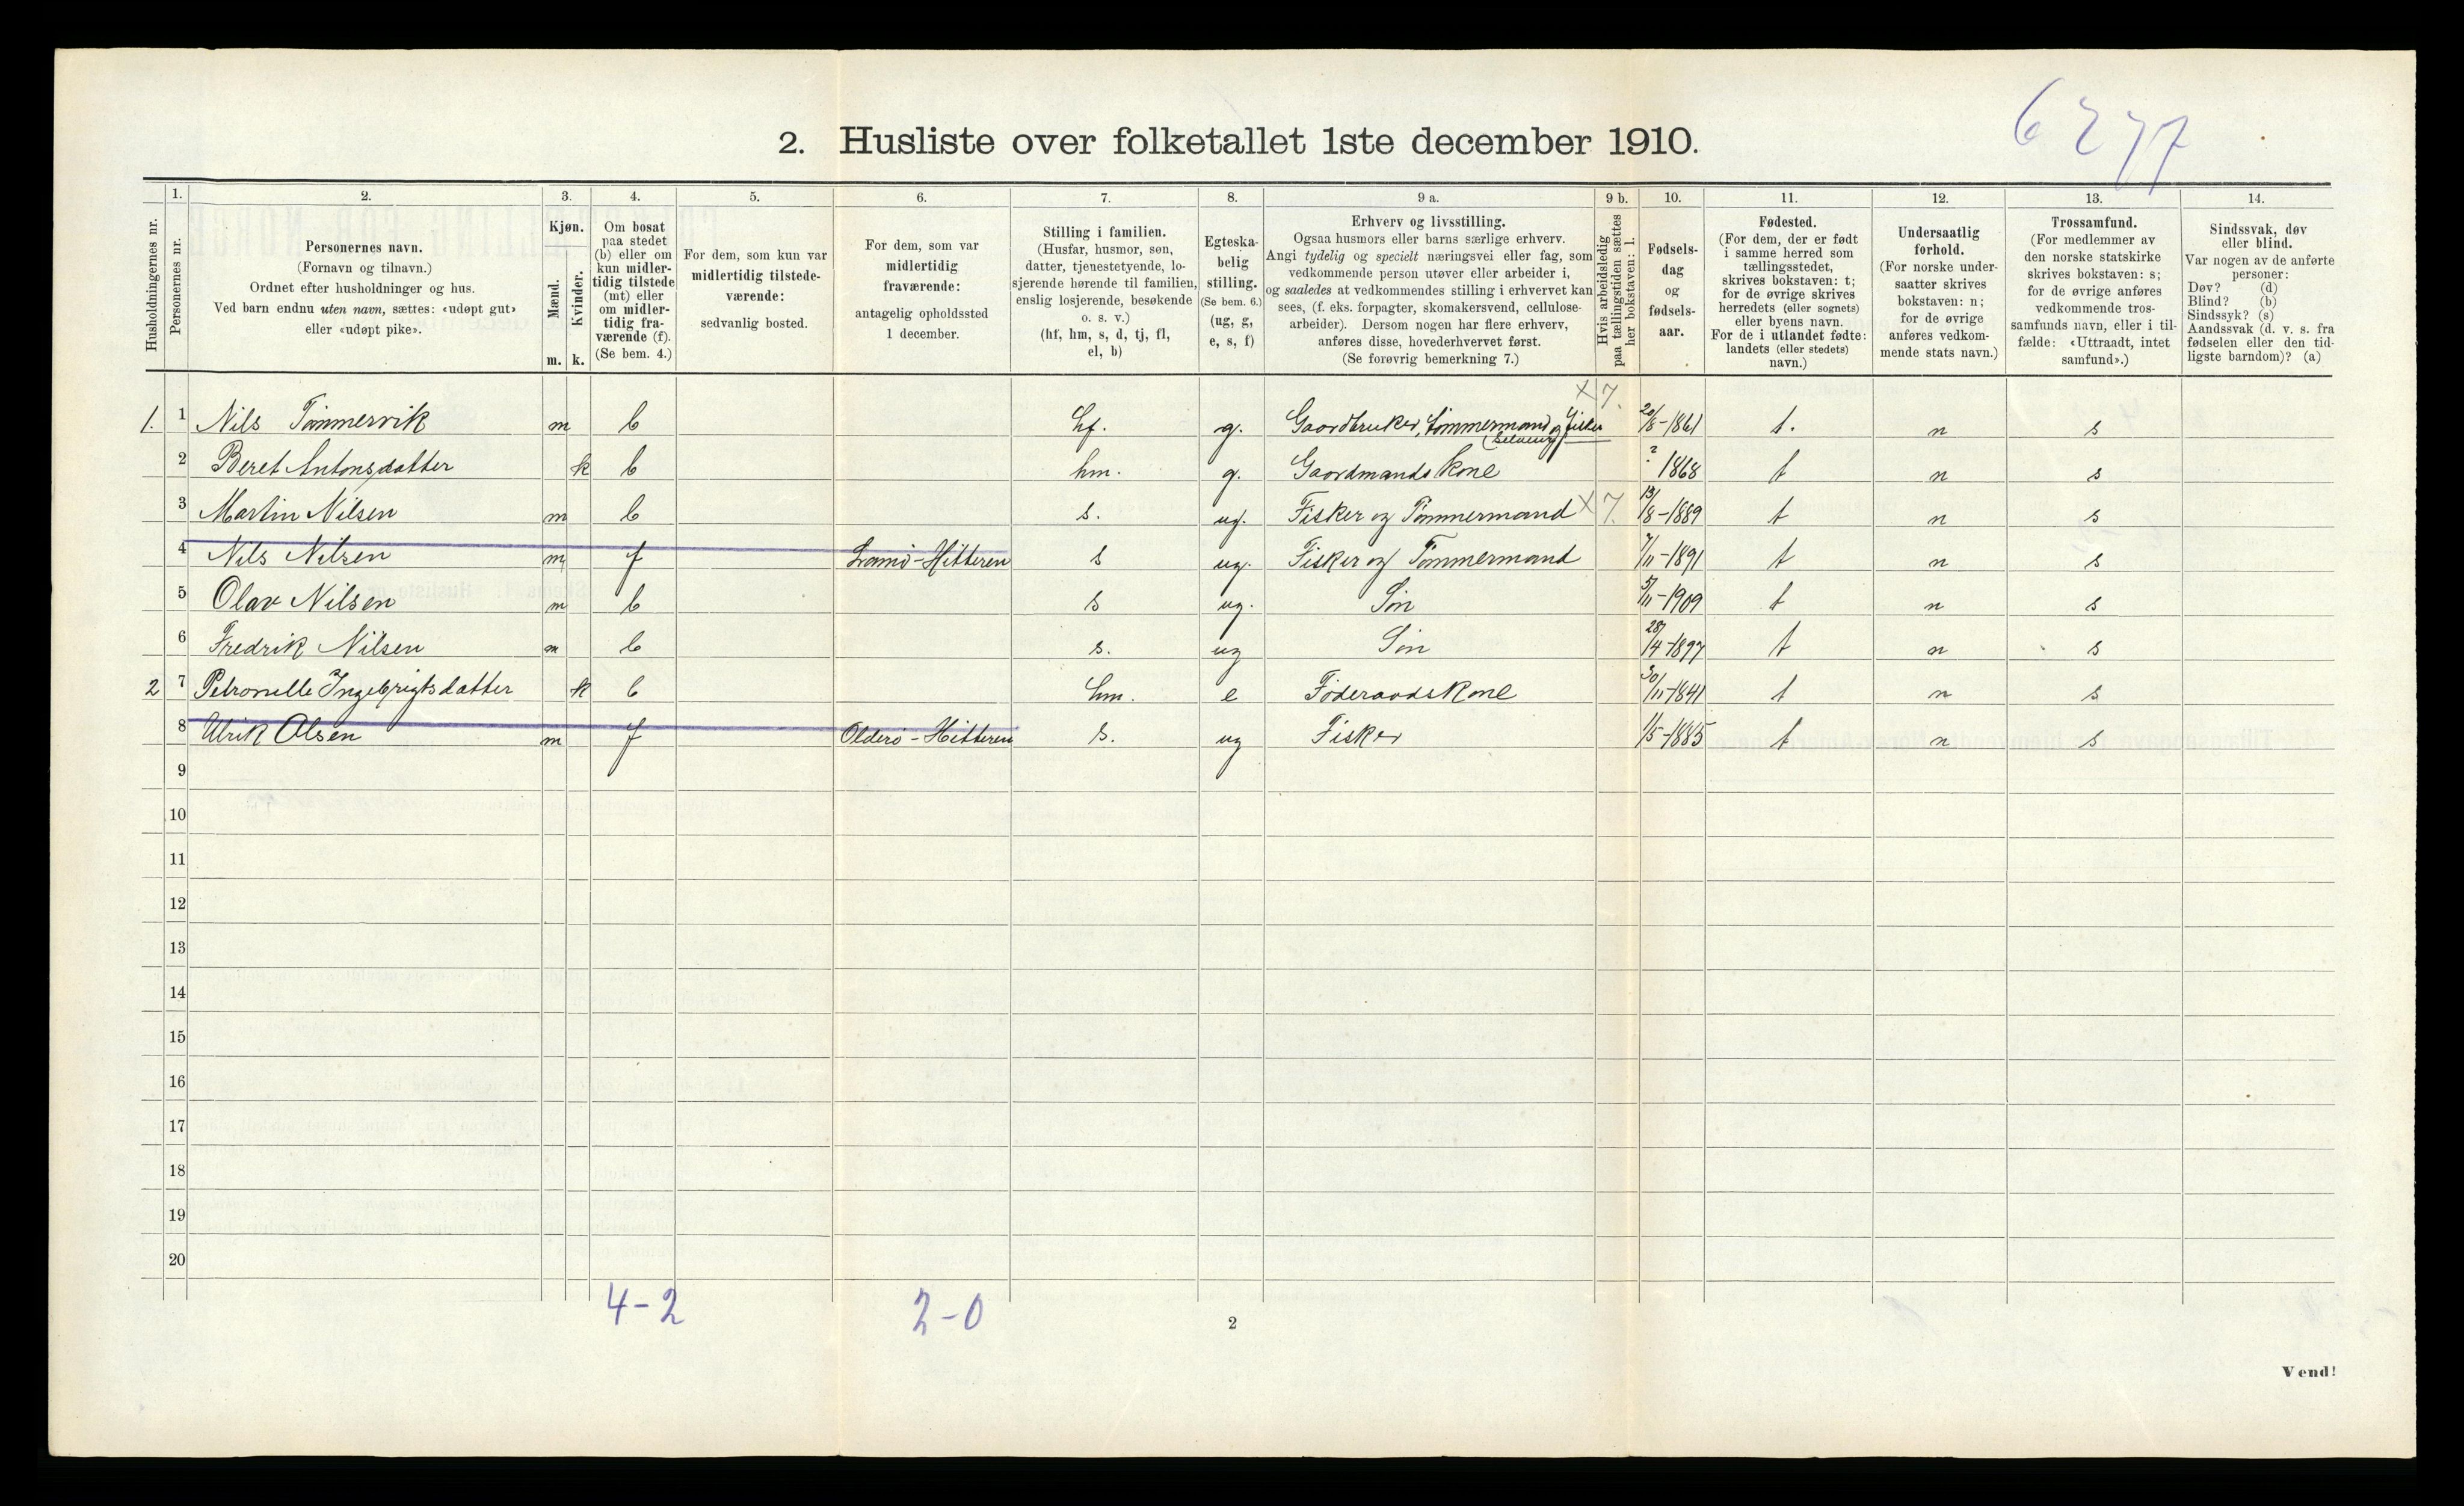 6277
2. Husliste over folketallet 1ste december 1910.
Husholdningernes nr.
1. Personernes nr.
2. Personernes navn. (Fornavn og tilnavn.) Ordnet efter husholdninger og hus. Ved barn endnu uten navn, sættes: «udøpt gut» eller «udøpt pike».
3. Kjøn. Mænd. m. Kvinder. k.
4. Om bosat paa stedet (b) eller om kun midlertidig tilstede (mt) eller om midlertidig fraværende (f). (Se bem. 4.)
5. For dem, som kun var midlertidig tilstedeværende: sedvanlig bosted.
6. For dem, som var midlertidig fraværende: antagelig opholdssted 1 december.
7. Stilling i familien. (Husfar, husmor, søn, datter, tjenestetyende, losjerende hørende til familien, enslig losjerende, besøkende o. s. v.) (hf, hm, s, d, tj, fl, el, b)
8. Egteskabelig stilling. (Se bem. 6.) (ug, g, e, s, f)
9 a. Erhverv og livsstilling. Ogsaa husmors eller barns særlige erhverv. Angi tydelig og specielt næringsvei eller fag, som vedkommende person utøver eller arbeider i, og saaledes at vedkommendes stilling i erhvervet kan sees, (f. eks. forpagter, skomakersvend, cellulosearbeider). Dersom nogen har flere erhverv, anføres disse, hovederhvervet først. (Se forøvrig bemerkning 7.)
9 b. Hvis arbeidsledig paa tællingstiden sættes her bokstaven: l.
10. Fødselsdag og fødselsaar.
11. Fødested. (For dem, der er født i samme herred som tællingsstedet, skrives bokstaven: t; for de øvrige skrives herredets (eller sognets) eller byens navn. For de i utlandet fødte: landets (eller stedets) navn.)
12. Undersaatlig forhold. (For norske undersaatter skrives bokstaven: n; for de øvrige anføres vedkommende stats navn.)
13. Trossamfund. (For medlemmer av den norske statskirke skrives bokstaven: s; for de øvrige anføres vedkommende trossamfunds navn, eller i tilfælde: «Uttraadt, intet samfund».)
14. Sindssvak, døv eller blind. Var nogen av de anførte personer: Døv? (d) Blind? (b) Sindssyk? (s) Aandssvak (d. v. s. fra fødselen eller den tidligste barndom)? (a)
1. 1 Nils Tømmervik m b hf. g. Gaardbruker, tømmermand og fisker x 7. 20/8-1861 t. n s
2 Beret Antonsdatter k b hm. g. Gaardmandskone ? 1868 t n s
3 Martin Nilsen m b s. ug. Fisker og Tømmermand x 7. 13/8-1889 t n s
4 Nils Nilsen m f -Hitteren s ug. Fisker og Tømmermand 7/11-1891 t n s
5 Olav Nilsen m b s ug. Søn 5/11-1909 t n s
6 Fredrik Nilsen m b s. ug Søn 28/4-1897 t n s
2 7 Petronelle Ingebrigtsdatter k b hm. e Føderaadskone 30/11-1841 t n s
8 Ulrik Olsen m f Olderø-Hitteren s. ug Fisker 1/5-1885 t n s
9
10
11
12
13
14
15
16
17
18
19
20
4-2 2-0
2
Vend!